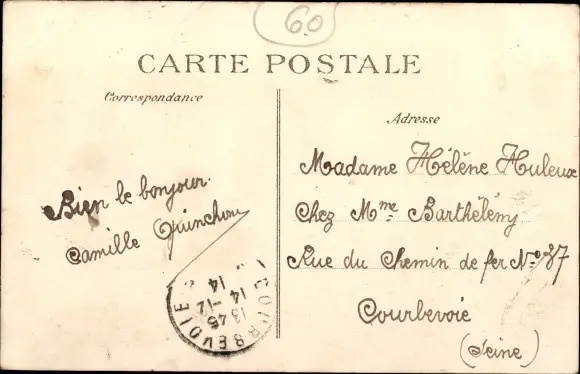 60
CARTE POSTALE
Correspondance
Bien le bonjour.
Camille
Adresse
Madame Hélène Huleux
Chez Mme Barthélémy
Rue du Chemin de fer No 37
Courbevoie
(Seine)
COURBEVOIE
13 45
14 -12
14